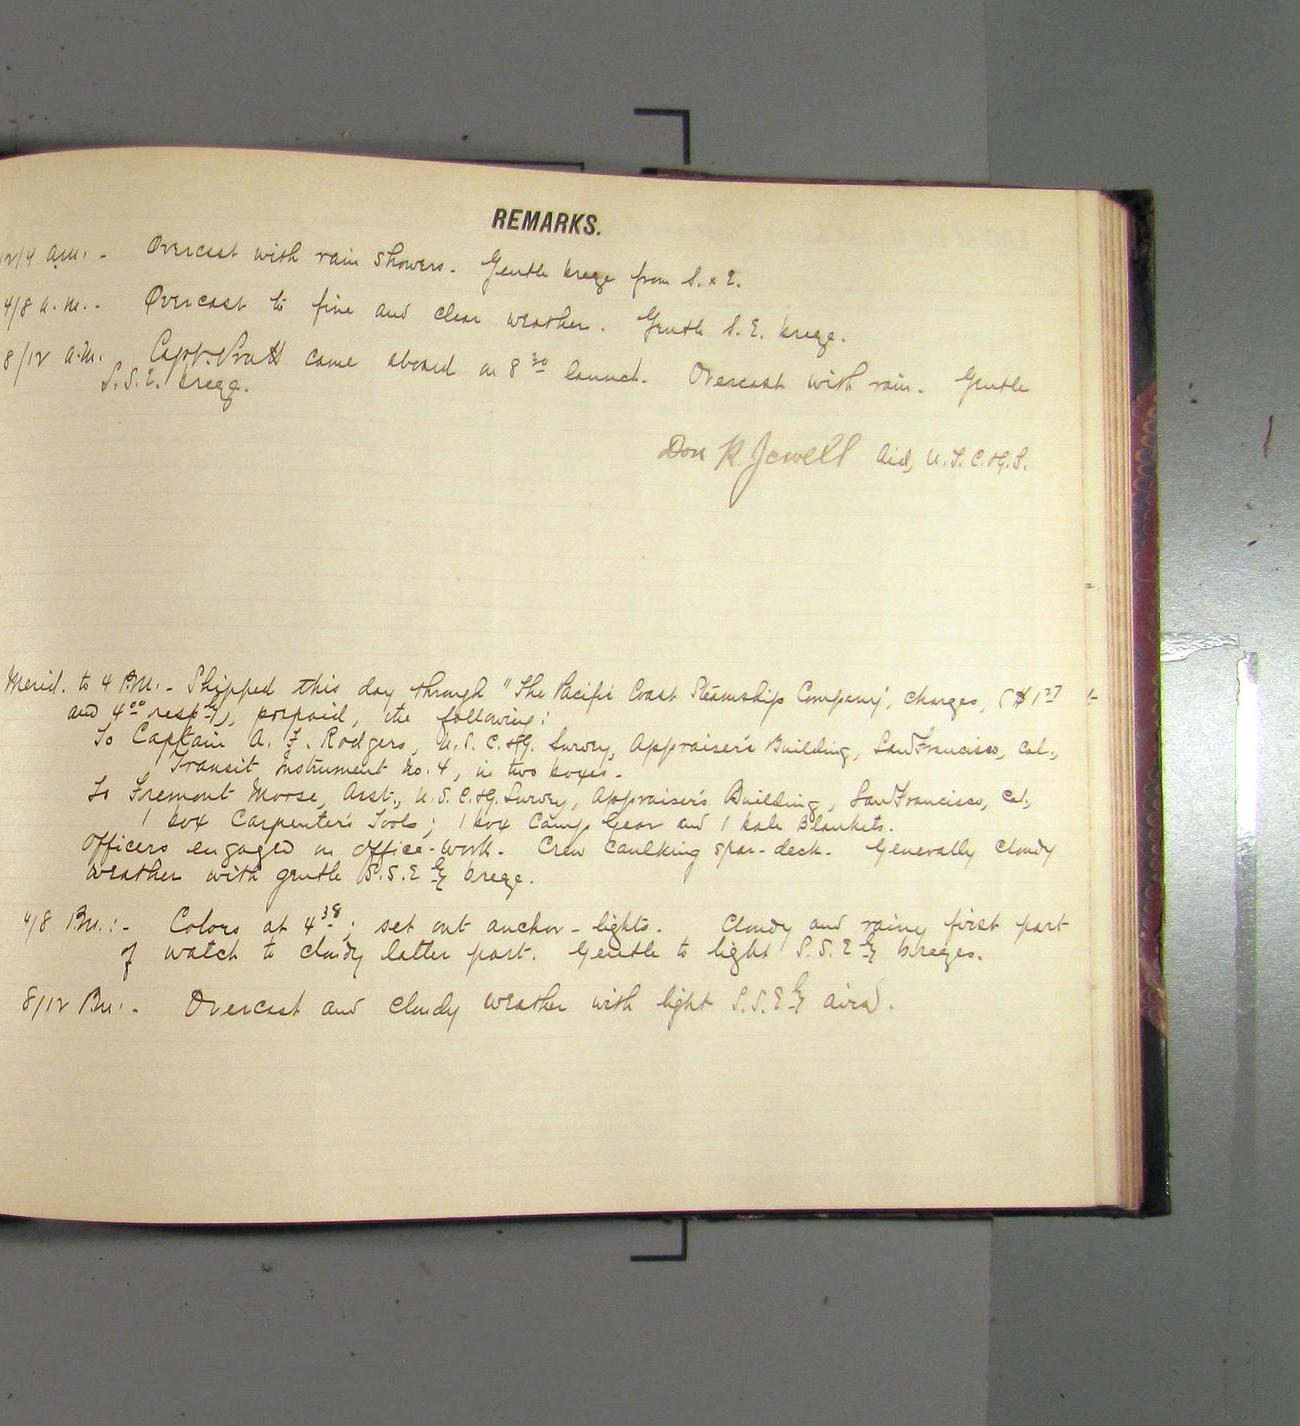 REMARKS.
12/4 a.m. - Overcast with rain showers. Gentle breeze from S. x E.
4/8 a.m. - Overcast to fine and clear weather. Gentle S.E. breeze.
8/12 a.m. Capt. Pratt came aboard on 8 30 launch. Overcast with rain. Gentle
S.S.E. breeze.
Don R. Jewell Aid, U.S.C.&G.S.
Merid. to 4 P.M. - Shipped this day through "The Pacific Coast Steamship Company", charges, ($1 27
and 4 00 resp'y), prepaid, the following:
To Captain A. F. Rodgers, U.S.C.&G. Survey, Appraiser's Building, San Francisco, Cal.,
Transit Instrument No. 4, in two boxes.
To Fremont Morse, Asst., U.S.C.&G. Survey, Appraiser's Building, San Francisco, Cal.,
1 box Carpenter's Tools; 1 box Camp Gear and 1 bale Blankets.
Officers engaged on office-work. Crew caulking spar-deck. Generally cloudy
weather with gentle S.S.E'ly breeze.
4/8 P.M.:- Colors at 4 38; set out anchor-lights. Cloudy and rainy first part
of watch to cloudy latter part. Gentle to light S.S.E'ly breezes.
8/12 P.M. - Overcast and cloudy weather with light S.S.E'ly airs.